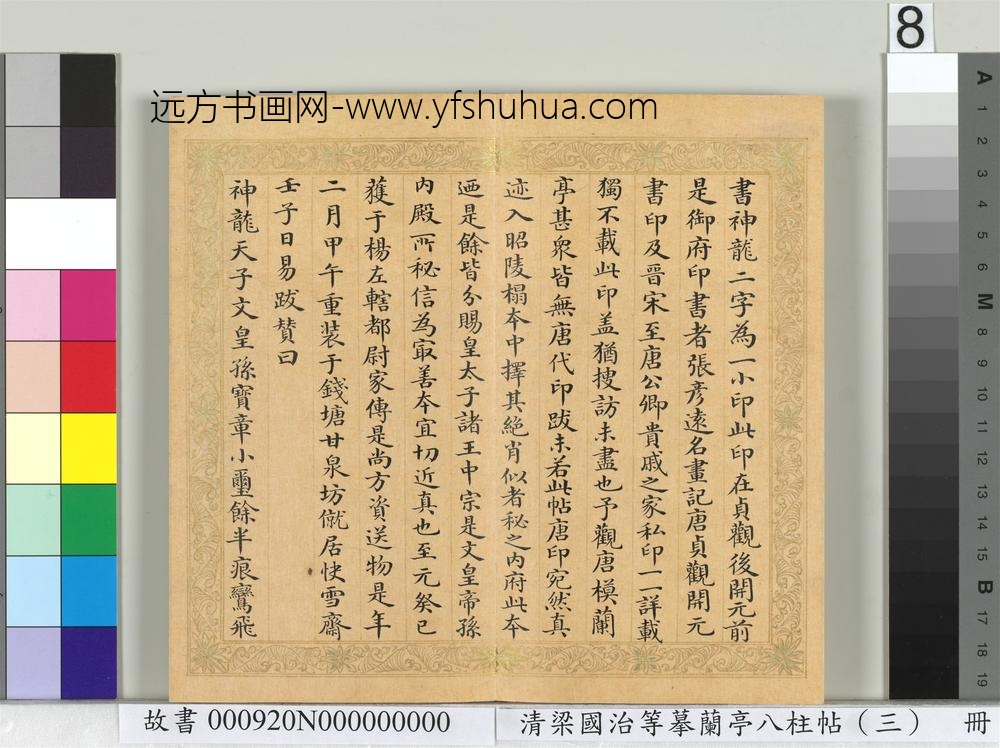 8
远方书画网-www.yfshuhua.com
書神龍二字為一小印此印在貞觀後開元前
是御府印書者張彥遠名畫記唐貞觀開元
書印及晉宋至唐公卿貴戚之家私印一一詳載
獨不載此印盖猶搜訪未盡也予觀唐模蘭
亭甚衆皆無唐代印跋未若此帖唐印宛然真
迹入昭陵榻夲中擇其絕肖似者秘之内府此夲
迺是餘皆分賜皇太子諸王中宗是文皇帝孫
内殿所秘信為冣善夲宜切近真也至元癸巳
獲于楊左轄都尉家傳是尚方資送物是年
二月甲午重装于錢塘甘泉坊僦居快雪齋
壬子日易跋賛曰
神龍天子文皇孫寶章小璽餘半痕鸞飛
A 1 2 3 4 5 6 M 8 9 10 11 12 13 14 15 B 17 18 19
故書 000920N000000000
清梁國治等摹蘭亭八柱帖（三） 冊